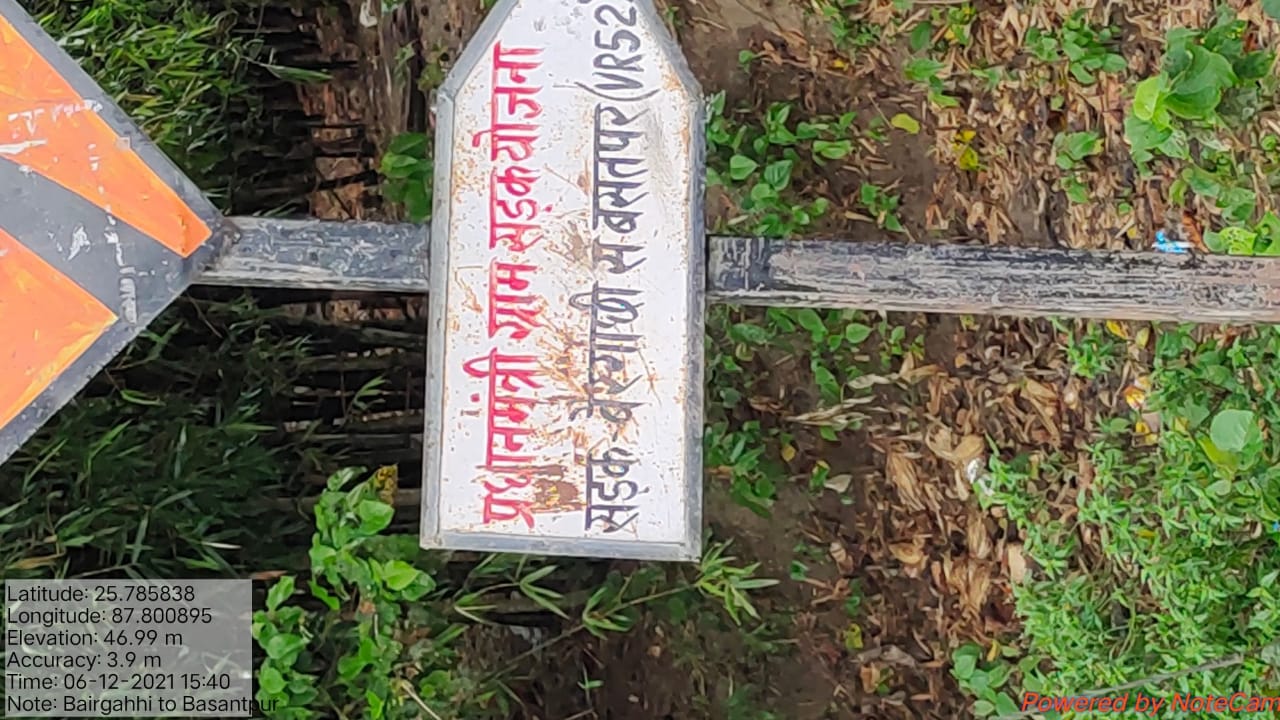 प्रधानमंत्री ग्राम सड़क योजना
सड़क-बैरगाछी से बसंतपुर (VR52
Latitude: 25.785838
Longitude: 87.800895
Elevation: 46.99 m
Accuracy: 3.9 m
Time: 06-12-2021 15:40
Note: Bairgahhi to Basantpur
Powered by NoteCam